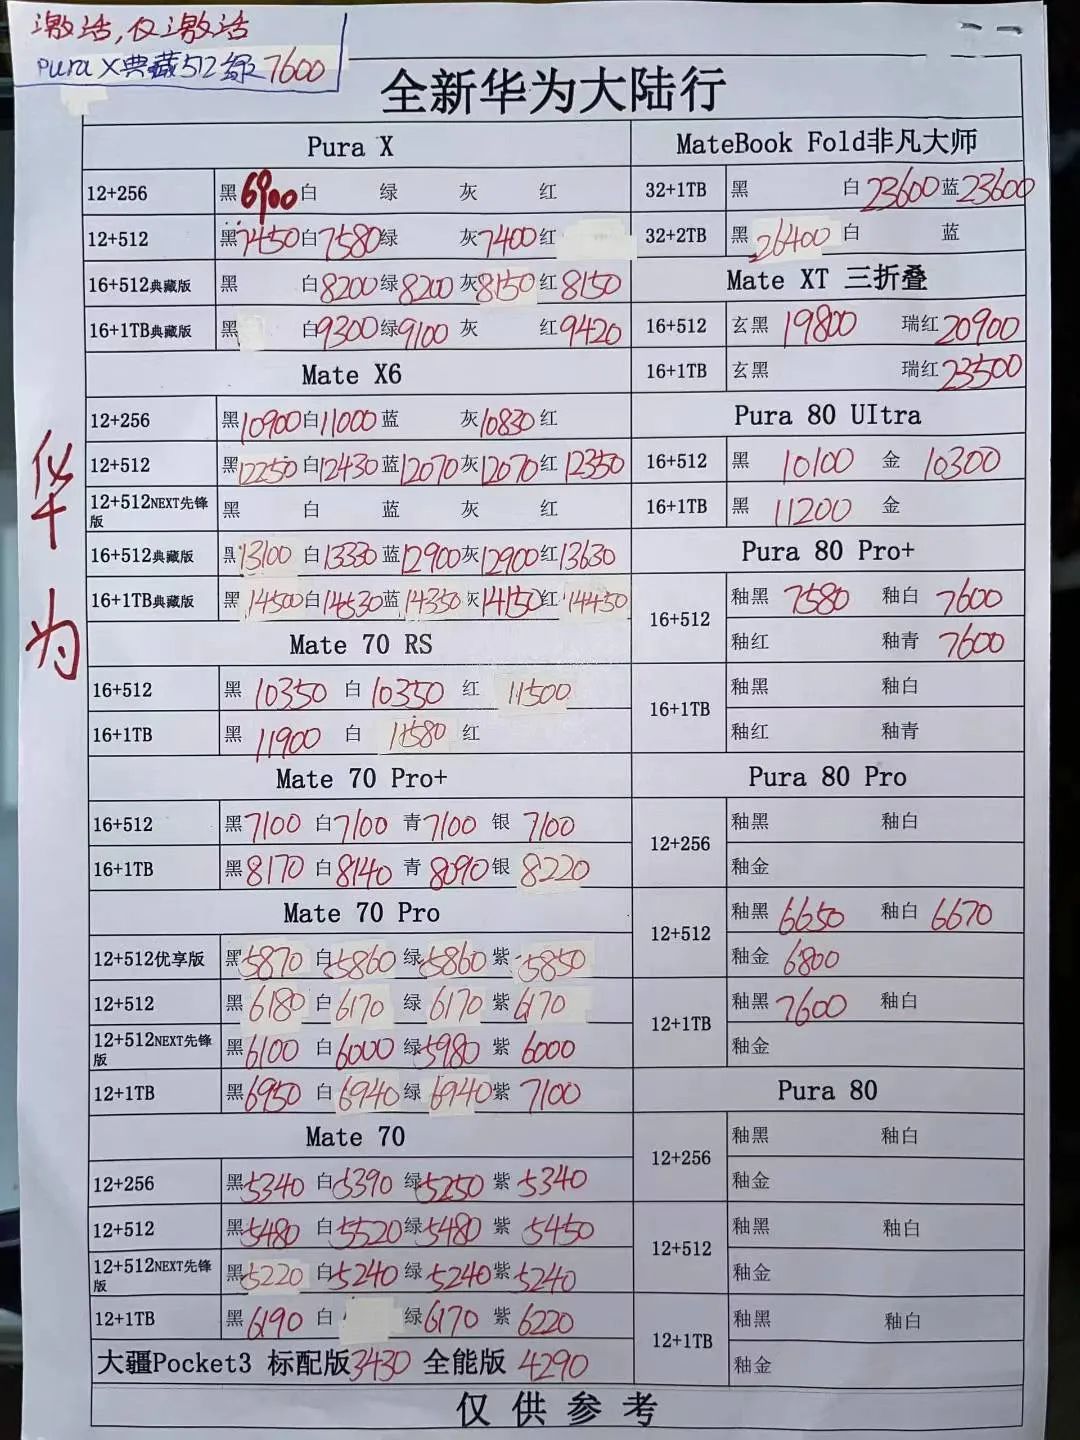 激活,仅激活
pura X典藏512绿7600
华为
全新华为大陆行
Pura X
12+256 黑6900白 绿 灰 红
12+512 黑7450白7580绿 灰7400红
16+512典藏版 黑 白8200绿8200灰8150红8150
16+1TB典藏版 黑 白9300绿9100灰 红9420
Mate X6
12+256 黑10900白11000蓝 灰10830红
12+512 黑12250白12430蓝12070灰12070红12350
12+512NEXT先锋版 黑 白 蓝 灰 红
16+512典藏版 黑13100白13330蓝12900灰12900红13630
16+1TB典藏版 黑14500白14530蓝14350灰14150红14450
Mate 70 RS
16+512 黑10350 白10350 红11500
16+1TB 黑11900 白11580 红
Mate 70 Pro+
16+512 黑7100 白7100 青7100 银7100
16+1TB 黑8170 白8140 青8090 银8220
Mate 70 Pro
12+512优享版 黑5870 白5860 绿5860 紫5850
12+512 黑6180 白6170 绿6170 紫6170
12+512NEXT先锋版 黑6100 白6000 绿5980 紫6000
12+1TB 黑6950 白6940 绿6940 紫7100
Mate 70
12+256 黑5340 白5390 绿5250 紫5340
12+512 黑5480 白5520 绿5480 紫5450
12+512NEXT先锋版 黑5220 白5240 绿5240 紫5240
12+1TB 黑6190 白 绿6170 紫6220
大疆Pocket3 标配版3430 全能版 4290
MateBook Fold非凡大师
32+1TB 黑 白23600蓝23600
32+2TB 黑26400白 蓝
Mate XT 三折叠
16+512 玄黑19800 瑞红20900
16+1TB 玄黑 瑞红23500
Pura 80 UItra
16+512 黑 10100 金 10300
16+1TB 黑 11200 金
Pura 80 Pro+
16+512 釉黑 7580 釉白 7600
釉红 釉青 7600
16+1TB 釉黑 釉白
釉红 釉青
Pura 80 Pro
12+256 釉黑 釉白
釉金
12+512 釉黑 6650 釉白 6670
釉金 6800
12+1TB 釉黑 7600 釉白
釉金
Pura 80
12+256 釉黑 釉白
釉金
12+512 釉黑 釉白
釉金
12+1TB 釉黑 釉白
釉金
仅供参考